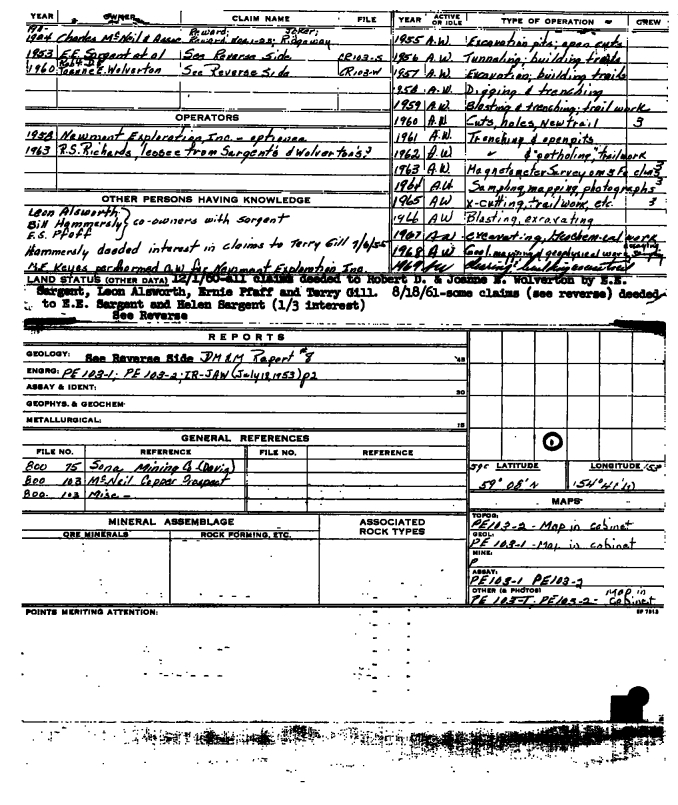 YEAR OWNER CLAIM NAME FILE
Charles McNeil & Assoc Reward; Joker; Reward Nos. 1-23; Ridgeway
1953 E.E. Sargent et al See Reverse Side CR103-S
1960 Robt D. & Joanne E. Wolverton See Reverse Side CR103-W
OPERATORS
1958 Newmont Exploration, Inc. - optionee
1963 R.S. Richards, lessee from Sargent's & Wolverton's?
OTHER PERSONS HAVING KNOWLEDGE
Leon Alsworth
Bill Hammersly co-owners with Sargent
E.S. Pfaff
Hammersly deeded interest in claims to Terry Gill 7/6/55
M.E. Keyes performed A.W. for Newmont Exploration Inc.
YEAR ACTIVE OR IDLE TYPE OF OPERATION CREW
1955 A.W. Excavation pits; open cuts
1956 A.W. Tunneling; building trails
1957 A.W. Excavation; building trails
1958 A.W. Digging & trenching
1959 A.W. Blasting & trenching; trail work
1960 A.W. Cuts, holes, New trail 3
1961 A.W. Trenching & openpits
1962 A.W. " & "potholing", trailwork
1963 A.W. Magnetometer Survey on 3 Fe claims 3
1964 AW Sampling, mapping, photographs 3
1965 AW X-cutting, trail work, etc. 3
1966 AW Blasting, excavating
1967 AW excavating, Geochemical work
1968 AW Geol. mapping & geophysical work
1969 AW
LAND STATUS (OTHER DATA) 12/1/60-all claims deeded to Robert D. & Joanne E. Wolverton by E.E.
Sargent, Leon Alsworth, Ernie Pfaff and Terry Gill. 8/18/61-some claims (see reverse) deeded
to E.E. Sargent and Helen Sargent (1/3 interest)
See Reverse
REPORTS
GEOLOGY: See Reverse Side DM&M Report #8
ENGRG: PE 103-1; PE 103-2; IR-JAW (July 18, 1953) p2
ASSAY & IDENT:
GEOPHYS. & GEOCHEM:
METALLURGICAL:
45
30
15
GENERAL REFERENCES
FILE NO. REFERENCE FILE NO. REFERENCE
800 75 Sona Mining Co (Davis)
800 103 McNeil Copper Prospect
800. 103 Misc -
59° LATITUDE LONGITUDE 153°
59° 08' N 154° 41'
MAPS
TOPOG: PE 103-2 - Map in cabinet
GEOL: PE 103-1 - Map in cabinet
MINE: P
ASSAY: PE103-1 PE103-2
OTHER (& PHOTOS) PE 103-1. PE 103-2 - Map in cabinet
MINERAL ASSEMBLAGE ASSOCIATED ROCK TYPES
ORE MINERALS ROCK FORMING, ETC.
POINTS MERITING ATTENTION: